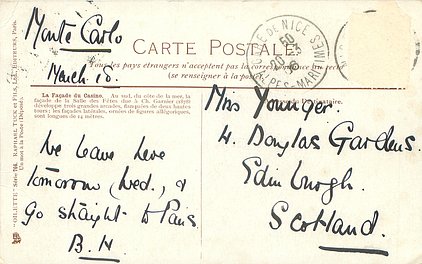 Monte Carlo
March 10.
CARTE POSTALE
Tous les pays étrangers n'acceptent pas la correspondance au recto
(se renseigner à la poste)
DE NICE
ALPES-MARITIMES
La Façade du Casino. Au sud, du côté de la mer, la
façade de la Salle des Fêtes due à Ch. Garnier (1878)
développe trois grandes arcades, flanquées de deux hautes
tours; les façades latérales, ornées de figures allégoriques,
sont longues de 14 mètres.
We leave here
tomorrow, Wed., &
go straight to Paris.
B. H.
Miss Younger.
4. Douglas Gardens.
Edinburgh.
Scotland.
"OILETTE" Série RAPHAEL TUCK ET FILS, Ltd. EDITEURS, PARIS.